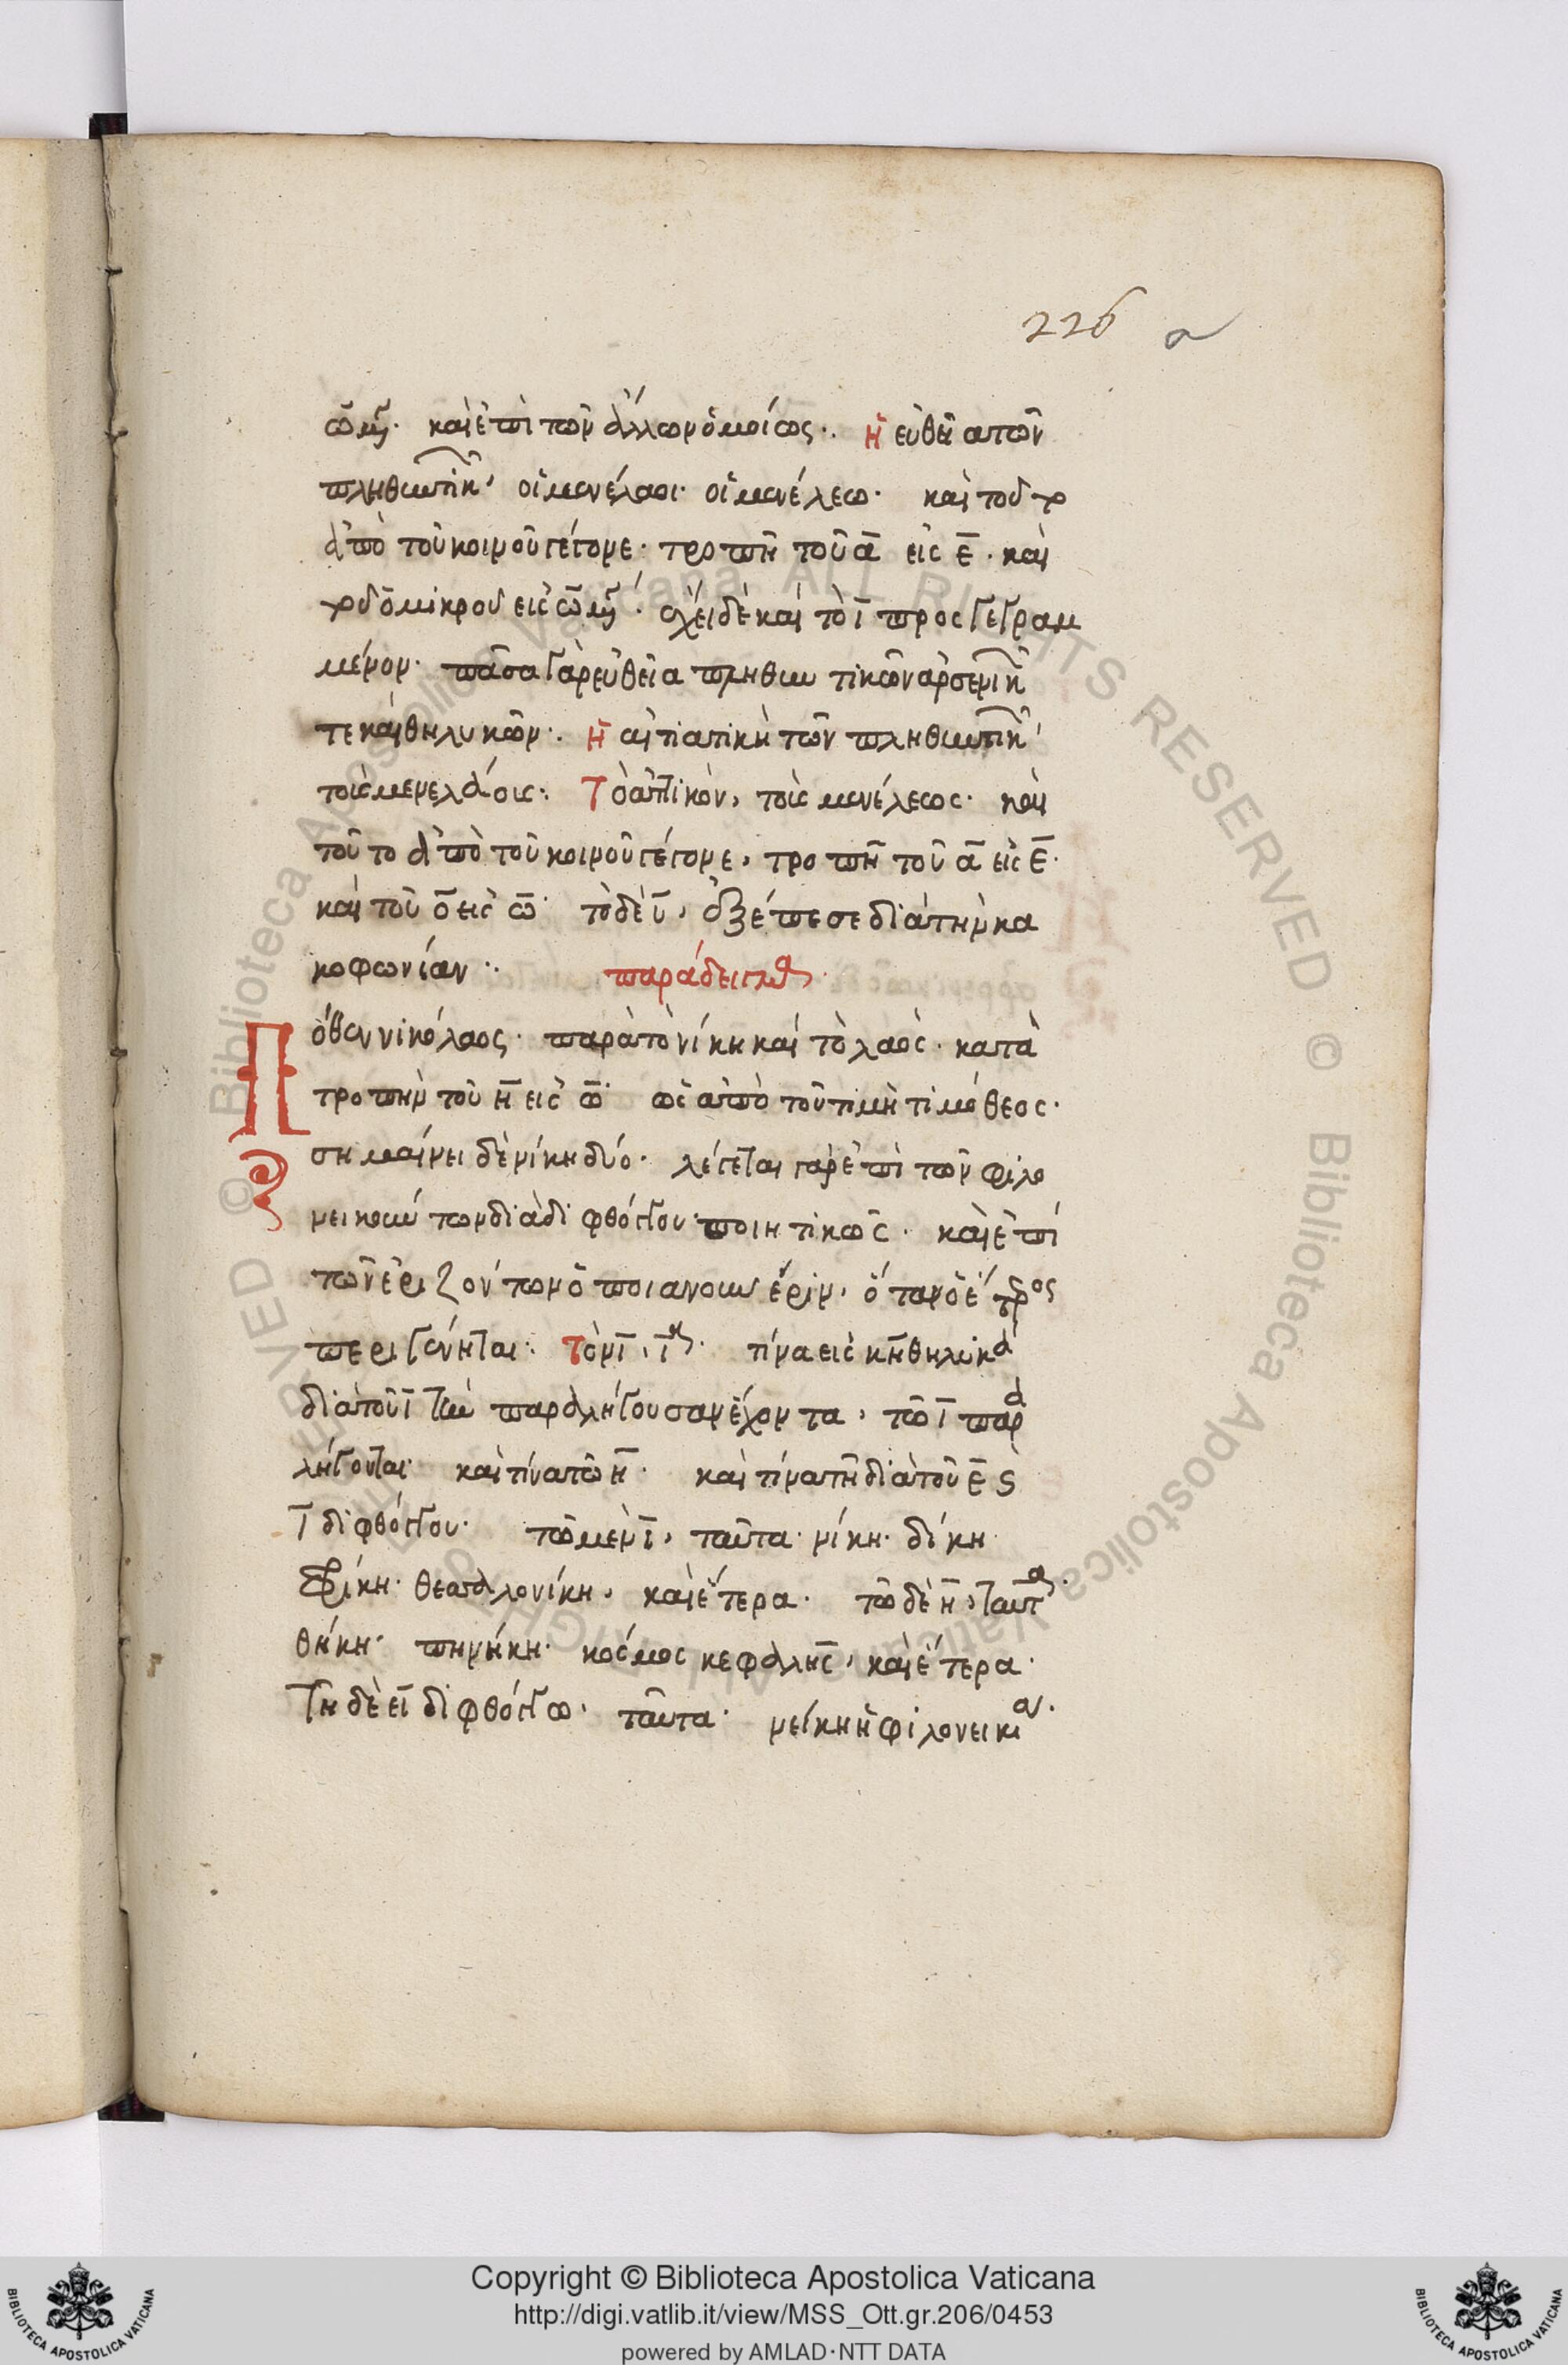 226 a
ω μέγ. καὶ ἐπὶ τῶν ἄλλων ὁμοίως· ἡ εὐθεῖα τῶν
πληθυντικ οἱ μενέλαοι· οἱ μενέλεω· καὶ τοῦτο
ἀπὸ τοῦ κοινοῦ γέγονε· τροπῆ τοῦ α εἰς ε· καὶ
τοῦ ὀμικροῦ εἰς ω μέγ· ἔχει δὲ καὶ τὸ ι προσγεγραμ
μένον· πᾶσα γὰρ εὐθεῖα πληθυντικῶν ἀρσενικ
τε καὶ θηλυκῶν· ἡ αἰτιατικὴ τῶν πληθυντικ
τοὺς μενελάους· Τὸ ἀττικὸν, τοὺς μενέλεως· καὶ
τοῦτο ἀπὸ τοῦ κοινοῦ γέγονε, τροπῆ τοῦ α εἰς ε·
καὶ τοῦ ο εἰς ω· τὸ δὲ υ, ἐξέπεσε διὰ τὴν κα
κοφωνίαν· παράδειγμα
Πόθεν νικόλαος· παρὰ τὸ νίκη καὶ τὸ λαὸς· κατὰ
τροπὴν τοῦ η εἰς ο· ὡς ἀπὸ τοῦ τιμὴ τιμόθεος·
σημαίνει δὲ νίκη δύο· λέγεται γὰρ ἐπὶ τῶν φιλο
νεικούντων διὰ διφθόγγου ποιητικῶς· καὶ ἐπὶ
τῶν ἐριζόντων ὁποιανοῦν ἔριν, ὅταν ὁ ἕτερος
περιγένηται· Τὸ νι, ι τίνα εἰς κη θηλυκὰ
διὰ τοῦ ι τὴν παραλήγουσαν ἔχοντα, τῶ ι παρα
λήγονται· καὶ τίνα τῶ η· καὶ τίνα τῆ διὰ τοῦ ε ϛ
ι διφθόγγου· τῶ μὲν ι, ταῦτα· νίκη· δίκη·
θεσσαλονίκη, καὶ ἕτερα· τῶ δὲ η, ταῦτα·
θήκη· πηνήκη· κόσμος κεφαλῆς, καὶ ἕτερα·
Τῆ δὲ ει διφθόγγω· ταῦτα· νείκη ἡ φιλονεικία·
Copyright © Biblioteca Apostolica Vaticana
http://digi.vatlib.it/view/MSS_Ott.gr.206/0453
powered by AMLAD·NTT DATA